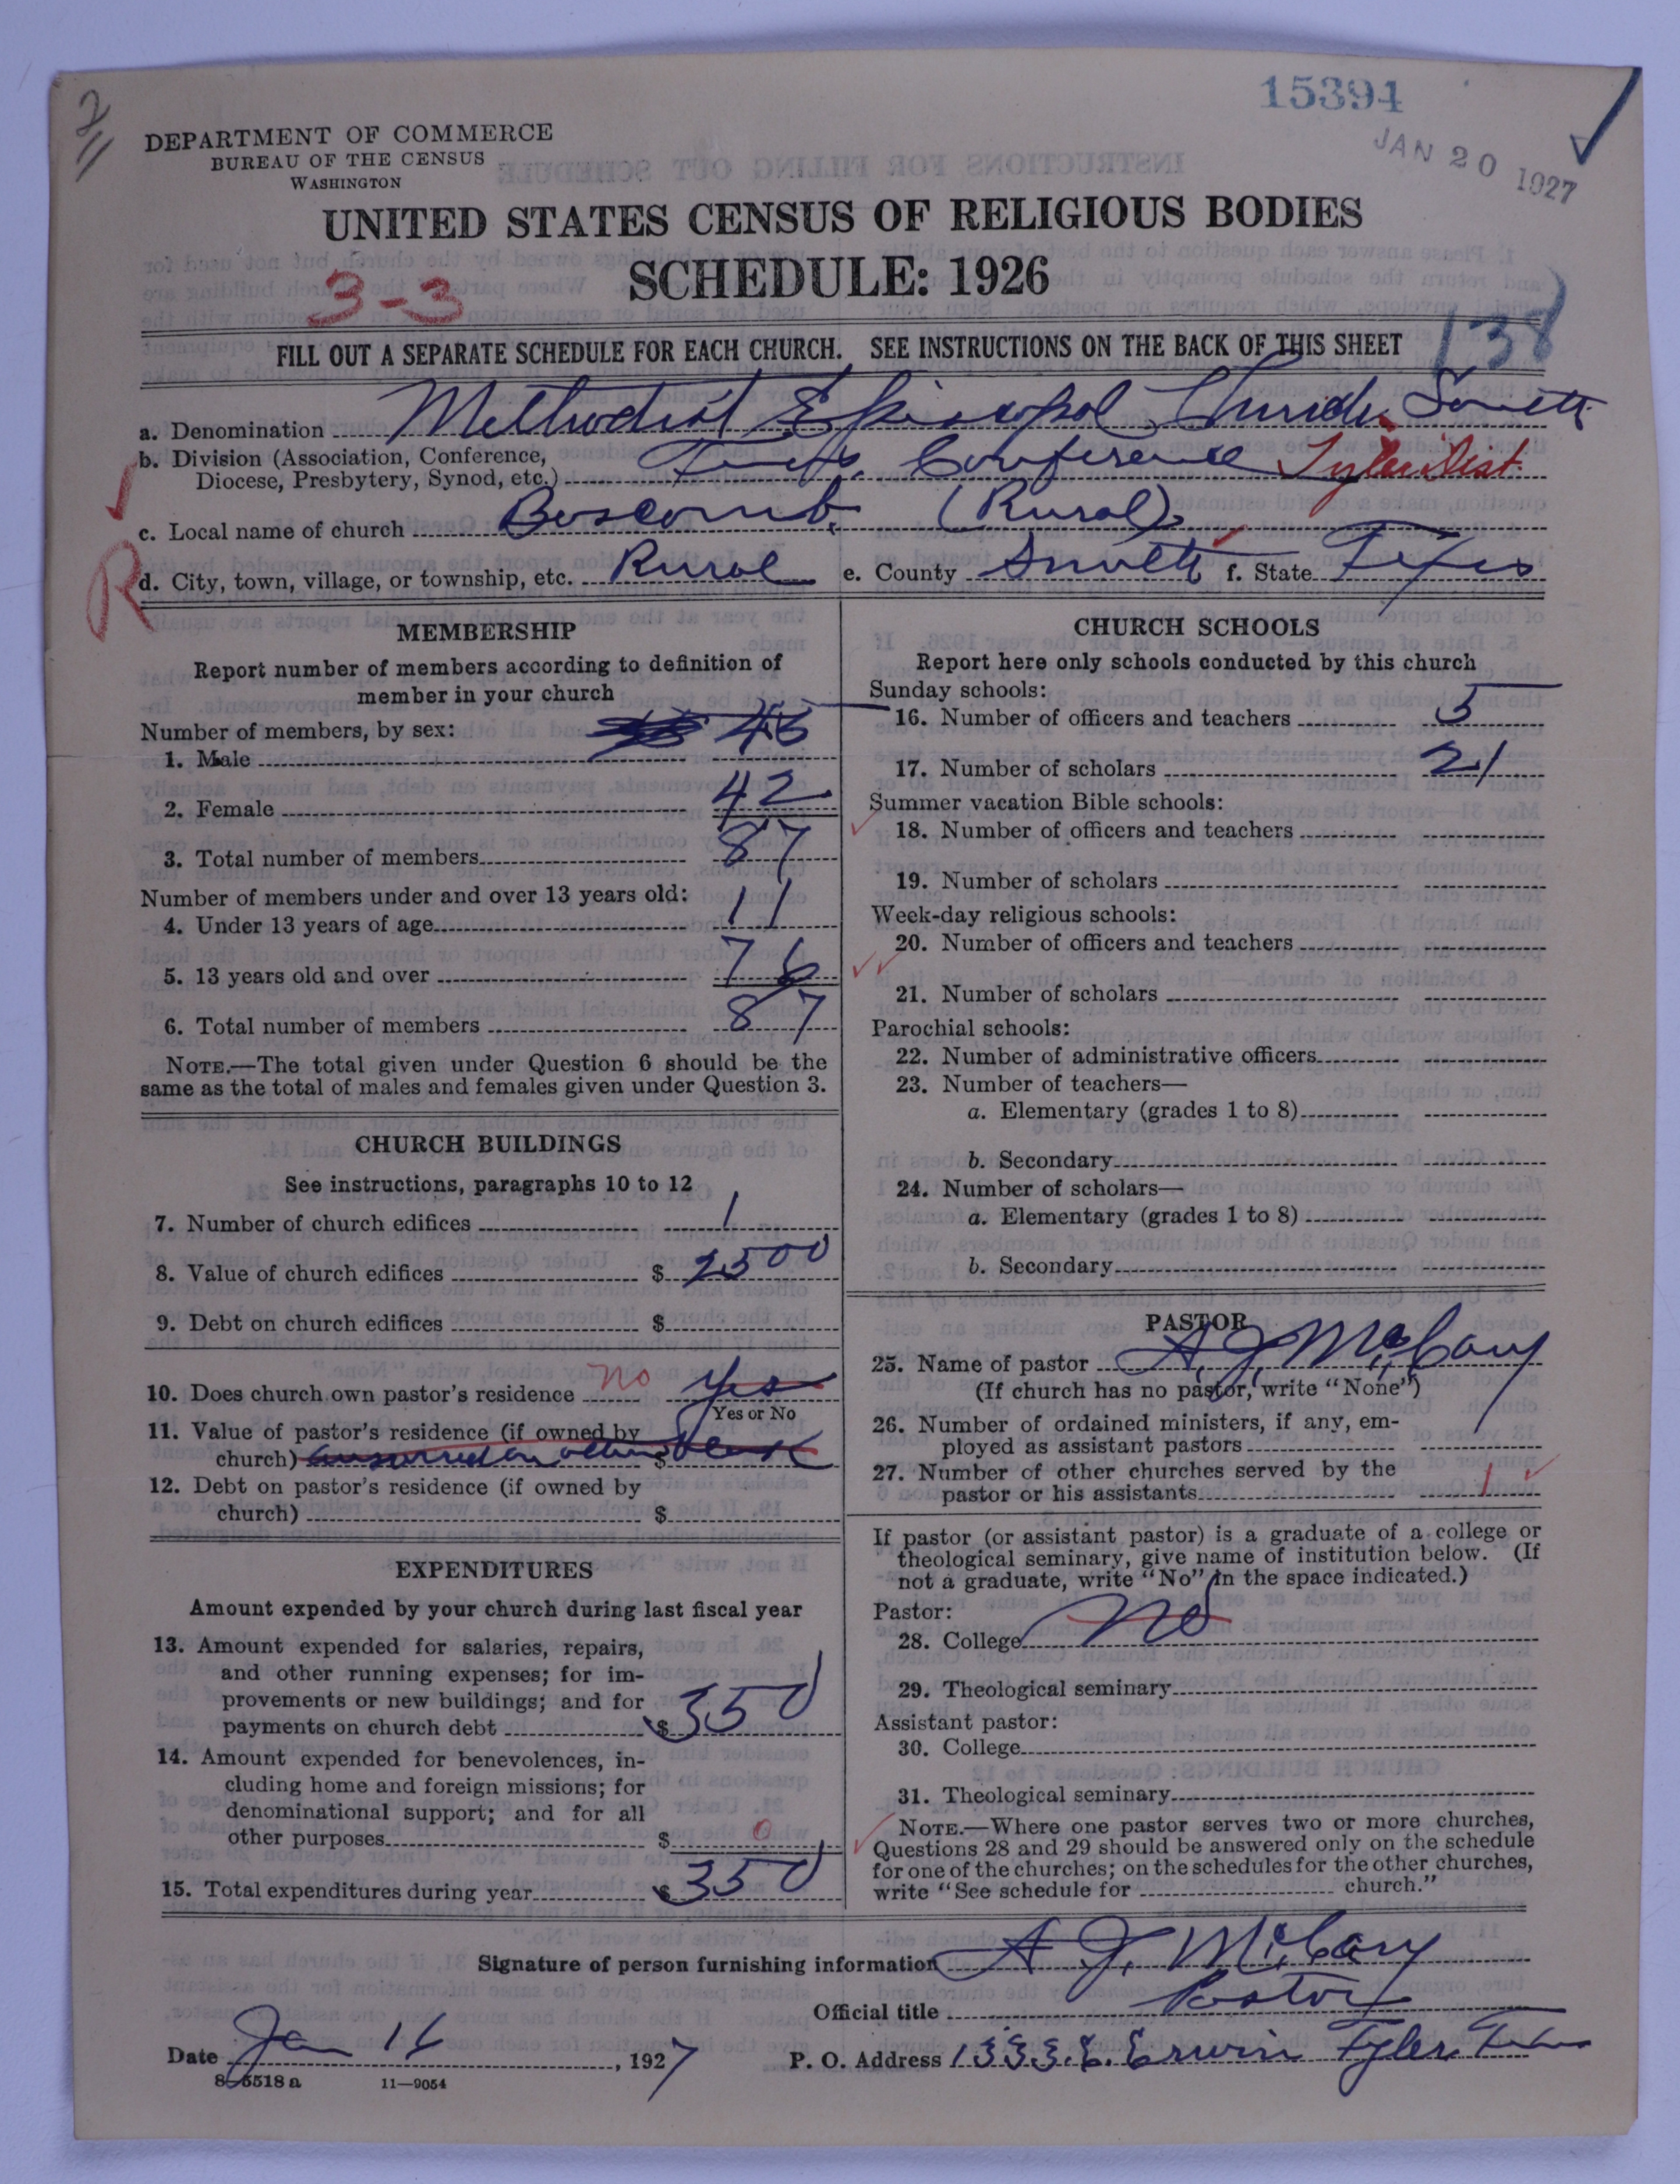 15394
JAN 20 1927
DEPARTMENT OF COMMERCE
BUREAU OF THE CENSUS
WASHINGTON
UNITED STATES CENSUS OF RELIGIOUS BODIES
SCHEDULE: 1926
3-3
138
FILL OUT A SEPARATE SCHEDULE FOR EACH CHURCH. SEE INSTRUCTIONS ON THE BACK OF THIS SHEET
a. Denomination Methodist Episcopal Church, South
b. Division (Association, Conference, Diocese, Presbytery, Synod, etc.) Texas Conference Tyler Dist.
c. Local name of church Boscomb (Rural)
R
d. City, town, village, or township, etc. Rural e. County Smith f. State Texas
MEMBERSHIP
Report number of members according to definition of
member in your church
Number of members, by sex:
1. Male 45
2. Female 42
3. Total number of members 87
Number of members under and over 13 years old:
4. Under 13 years of age 11
5. 13 years old and over 76
6. Total number of members 87
NOTE.—The total given under Question 6 should be the
same as the total of males and females given under Question 3.
CHURCH BUILDINGS
See instructions, paragraphs 10 to 12
7. Number of church edifices 1
8. Value of church edifices $ 2500
9. Debt on church edifices $
10. Does church own pastor's residence no yes
Yes or No
11. Value of pastor's residence (if owned by
church) answered on other blank $
12. Debt on pastor's residence (if owned by
church) $
EXPENDITURES
Amount expended by your church during last fiscal year
13. Amount expended for salaries, repairs,
and other running expenses; for im-
provements or new buildings; and for
payments on church debt $ 350
14. Amount expended for benevolences, in-
cluding home and foreign missions; for
denominational support; and for all
other purposes $ 0
15. Total expenditures during year $ 350
CHURCH SCHOOLS
Report here only schools conducted by this church
Sunday schools:
16. Number of officers and teachers 5
17. Number of scholars 21
Summer vacation Bible schools:
18. Number of officers and teachers
19. Number of scholars
Week-day religious schools:
20. Number of officers and teachers
21. Number of scholars
Parochial schools:
22. Number of administrative officers
23. Number of teachers—
a. Elementary (grades 1 to 8)
b. Secondary
24. Number of scholars—
a. Elementary (grades 1 to 8)
b. Secondary
PASTOR
25. Name of pastor A. J. McCary
(If church has no pastor, write "None")
26. Number of ordained ministers, if any, em-
ployed as assistant pastors
27. Number of other churches served by the
pastor or his assistants 1
If pastor (or assistant pastor) is a graduate of a college or
theological seminary, give name of institution below. (If
not a graduate, write "No" in the space indicated.)
Pastor:
28. College No
29. Theological seminary
Assistant pastor:
30. College
31. Theological seminary
NOTE.—Where one pastor serves two or more churches,
Questions 28 and 29 should be answered only on the schedule
for one of the churches; on the schedules for the other churches,
write "See schedule for church."
Signature of person furnishing information A. J. McCary
Official title Pastor
Date Jan 16, 1927 P. O. Address 1333 E. Erwin Tyler, Texas
8-5518 a 11—9054